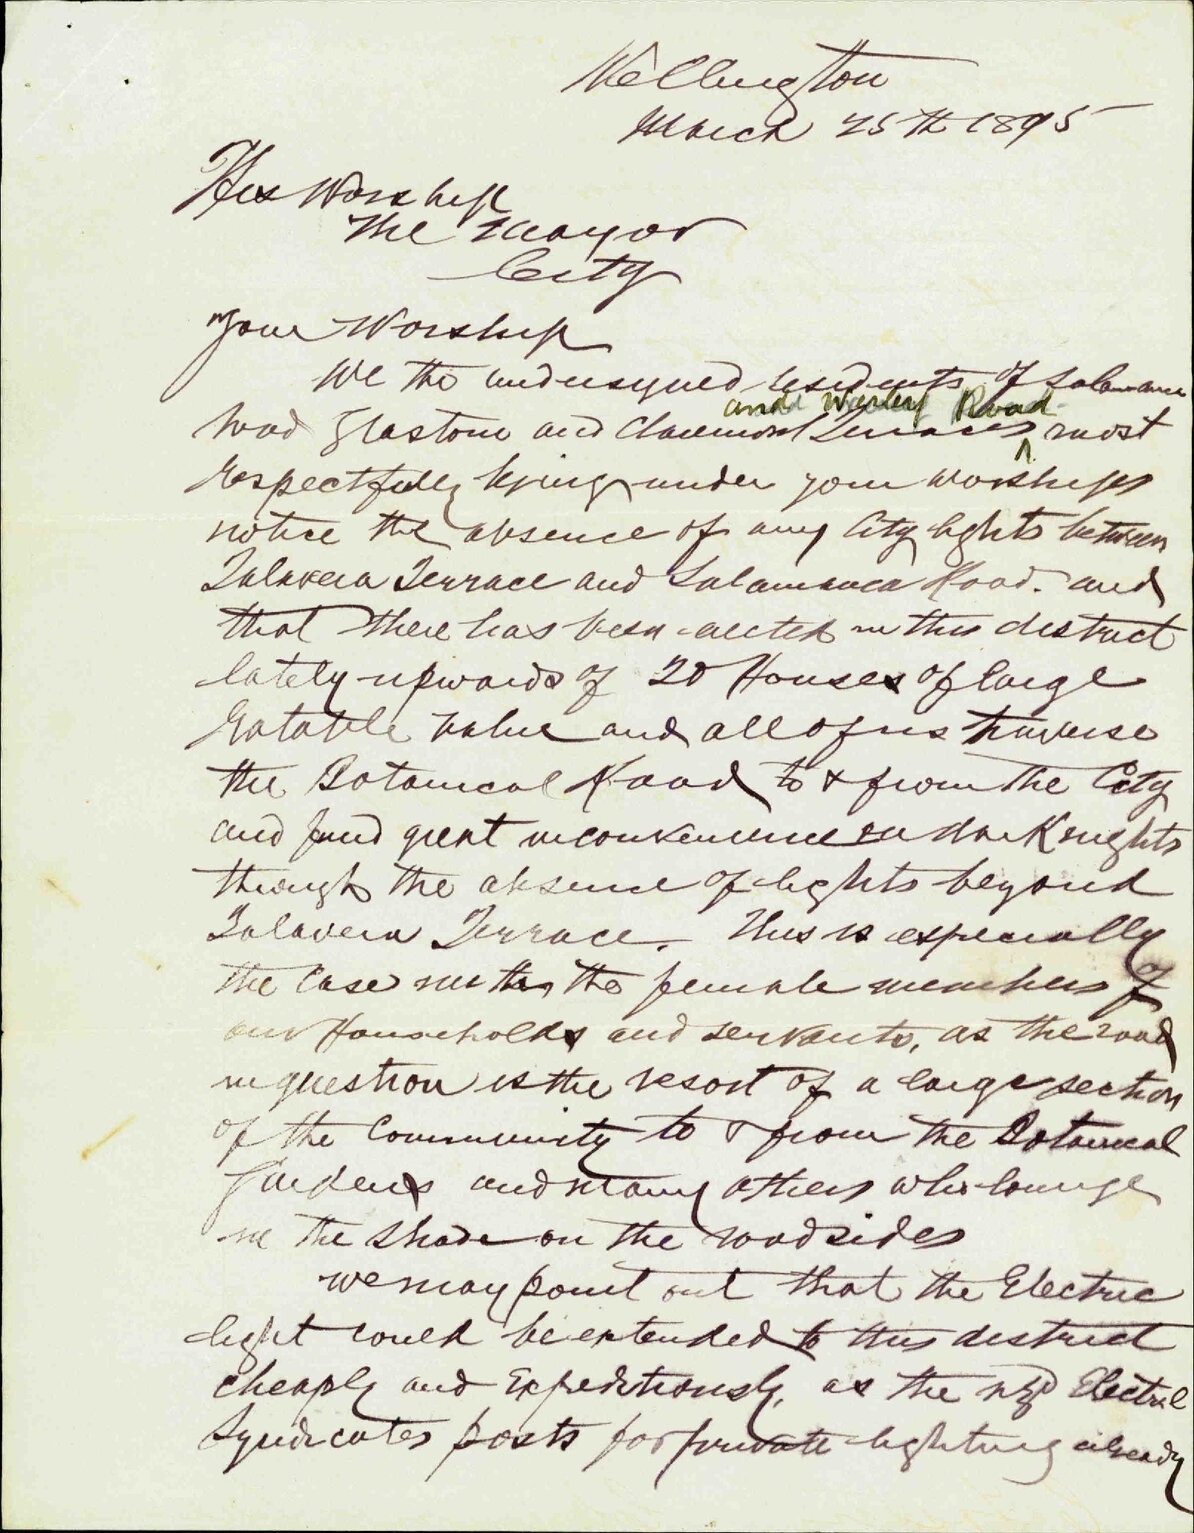 Wellington
March 25th 1895
His Worship
The Mayor
City
Your Worship
We the undersigned residents of Salamanca
and Wesley Road
Road Glastone and Claremont Terraces ^ most
respectfully bring under your Worships
notice the absence of any City lights between
Talavera Terrace and Salamanca Road. and
that there has been erected in this district
lately upwards of 20 Houses of large
Ratable value and all of us traverse
the Botanical Road to & from the City
and find great inconvenience on dark nights
through the absence of lights beyond
Talavera Terrace. This is especially
the case with the female members of
our Households and servants, as the road
in question is the resort of a large section
of the Community to & from the Botanical
Gardens and many others who lounge
in the shade on the roadsides
We may point out that the Electric
light could be extended to this district
cheaply and Expeditiously, as the NZ Electrical
Syndicates posts for private lighting already